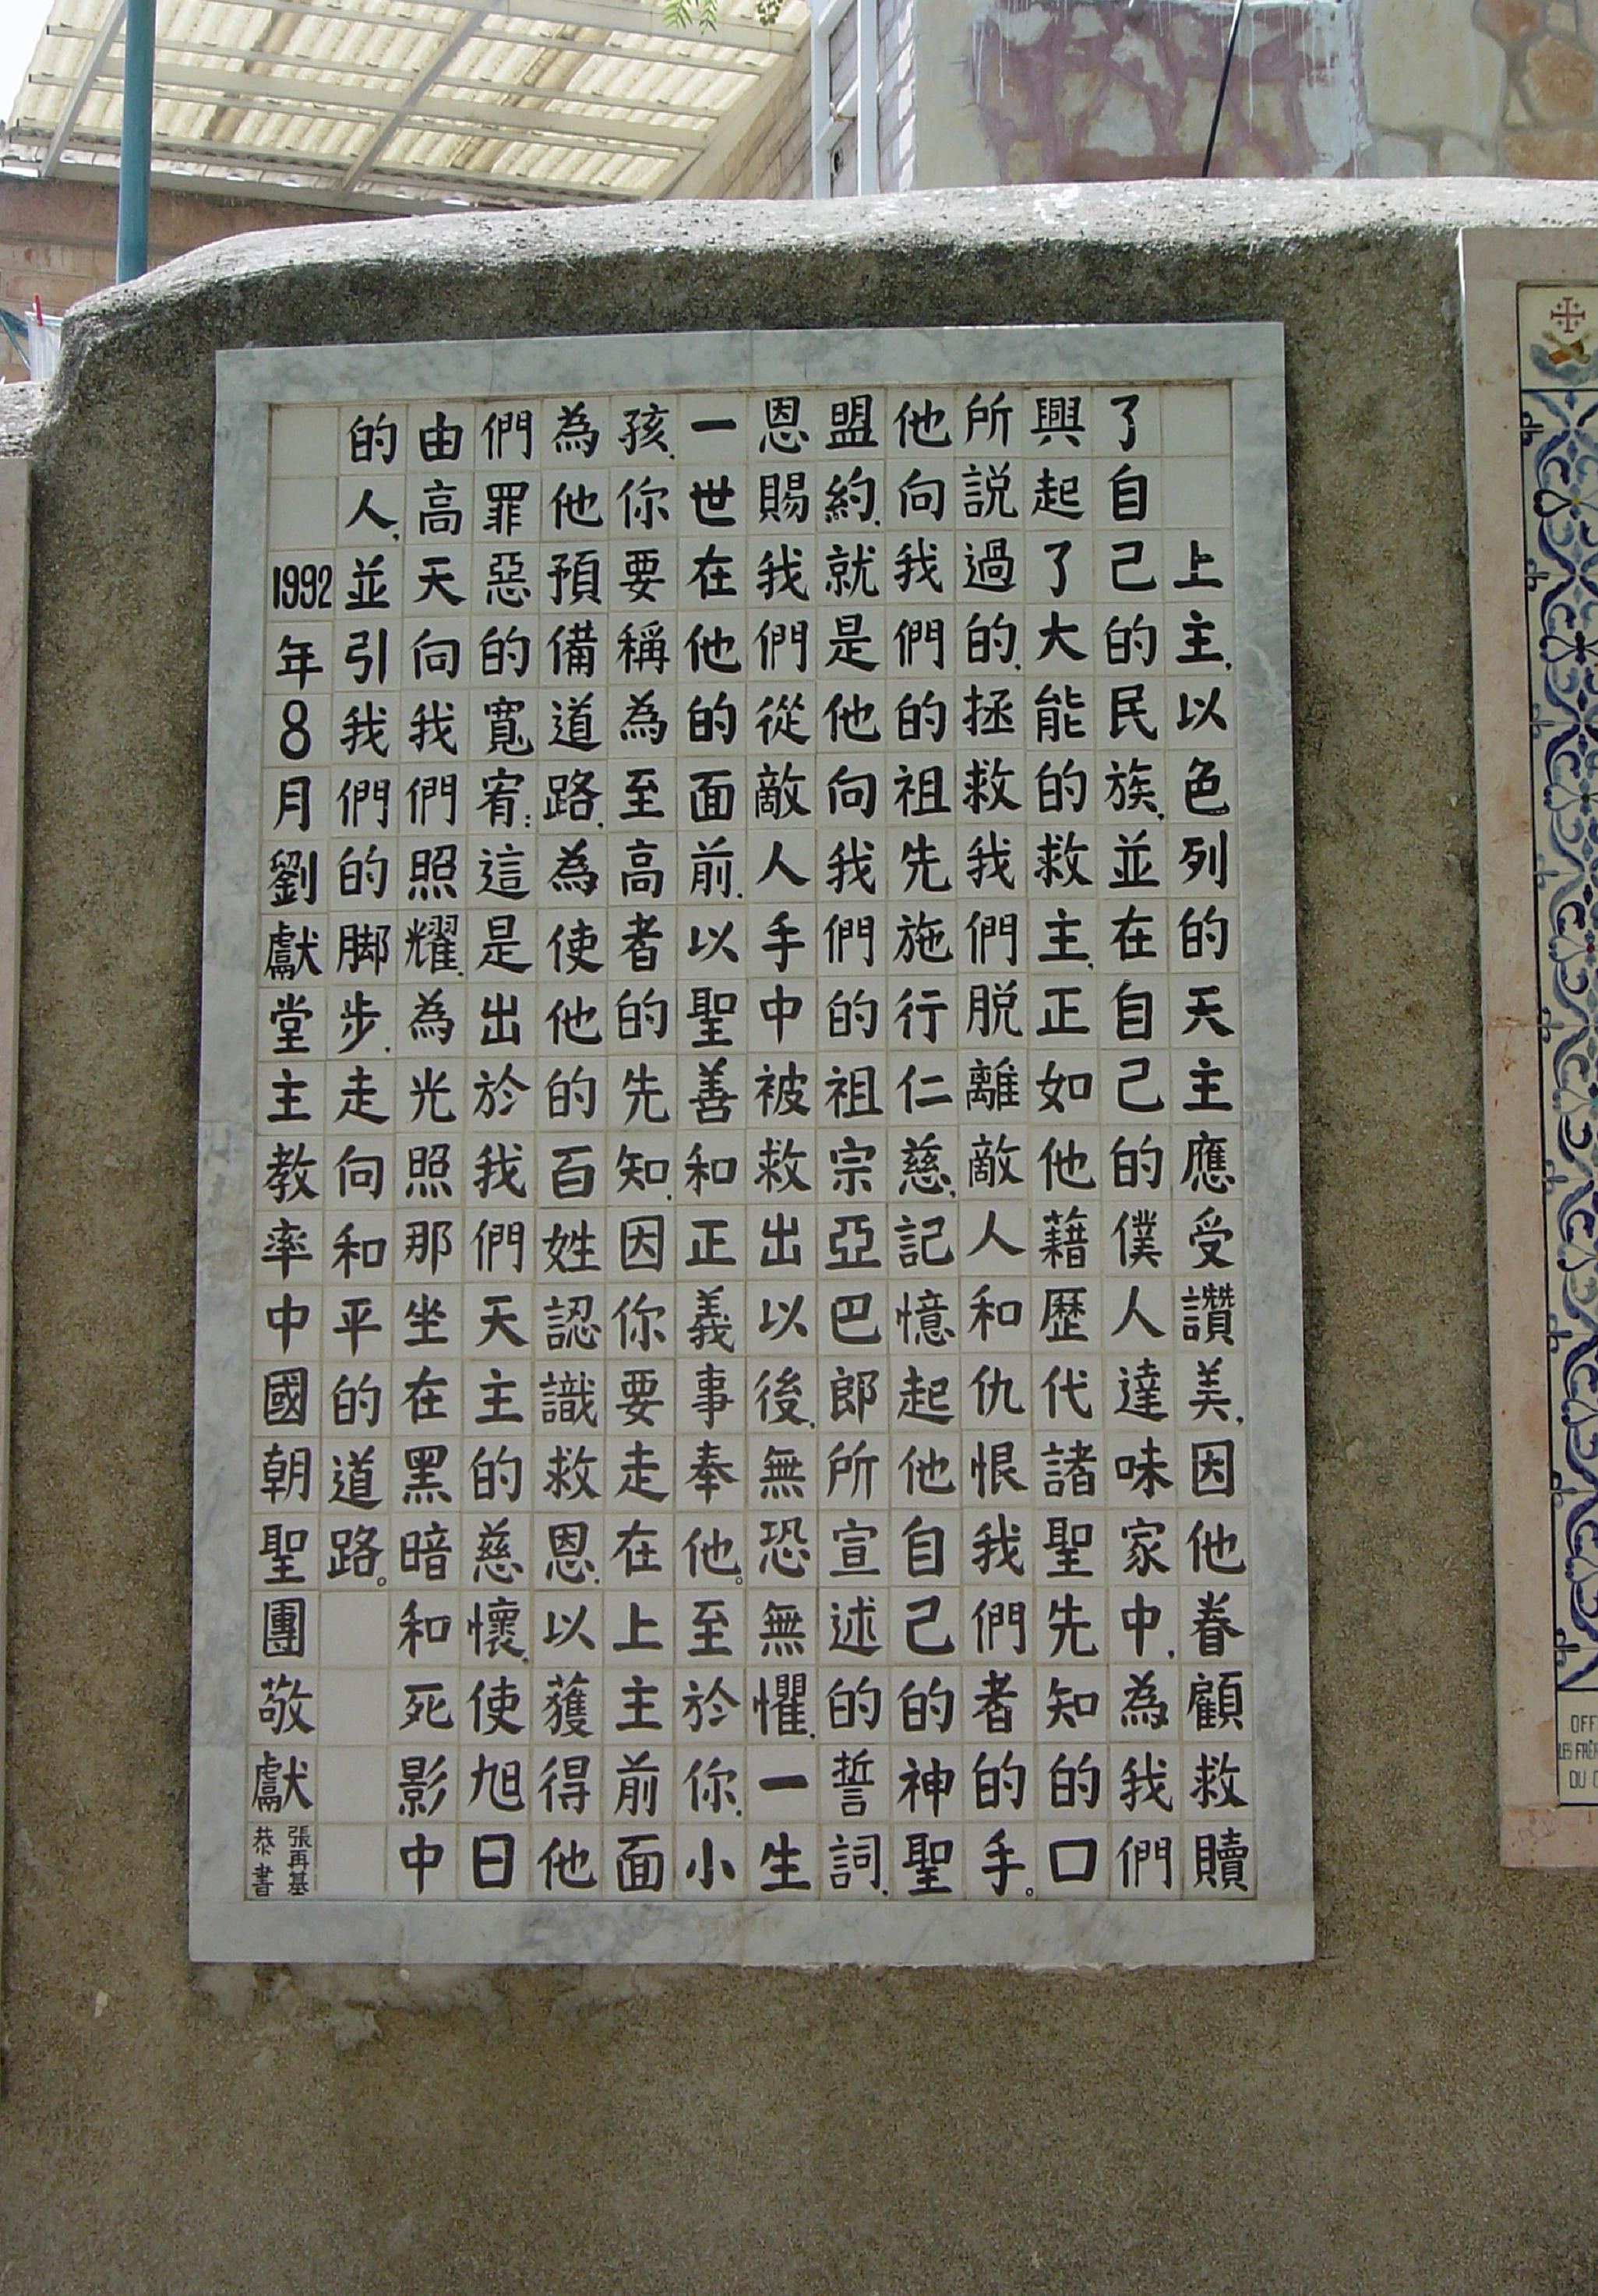 上主,以色列的天主應受讚美,因他眷顧救贖
了自己的民族,並在自己的僕人達味家中,為我們
興起了大能的救主,正如他藉歷代諸聖先知的口
所說過的,拯救我們脫離敵人和仇恨我們者的手。
他向我們的祖先施行仁慈,記憶起他自己的神聖
盟約,就是他向我們的祖宗亞巴郎所宣述的誓詞,
恩賜我們從敵人手中被救出以後,無恐無懼,一生
一世在他的面前,以聖善和正義事奉他。至於你,小
孩,你要稱為至高者的先知,因你要走在上主前面
為他預備道路,為使他的百姓認識救恩,以獲得他
們罪惡的寬宥;這是出於我們天主的慈懷,使旭日
由高天向我們照耀,為光照那坐在黑暗和死影中
的人,並引我們的腳步,走向和平的道路。
1992年8月劉獻堂主教率中國朝聖團敬獻
張再基
恭書
OFF
LES FRÈ
DU C